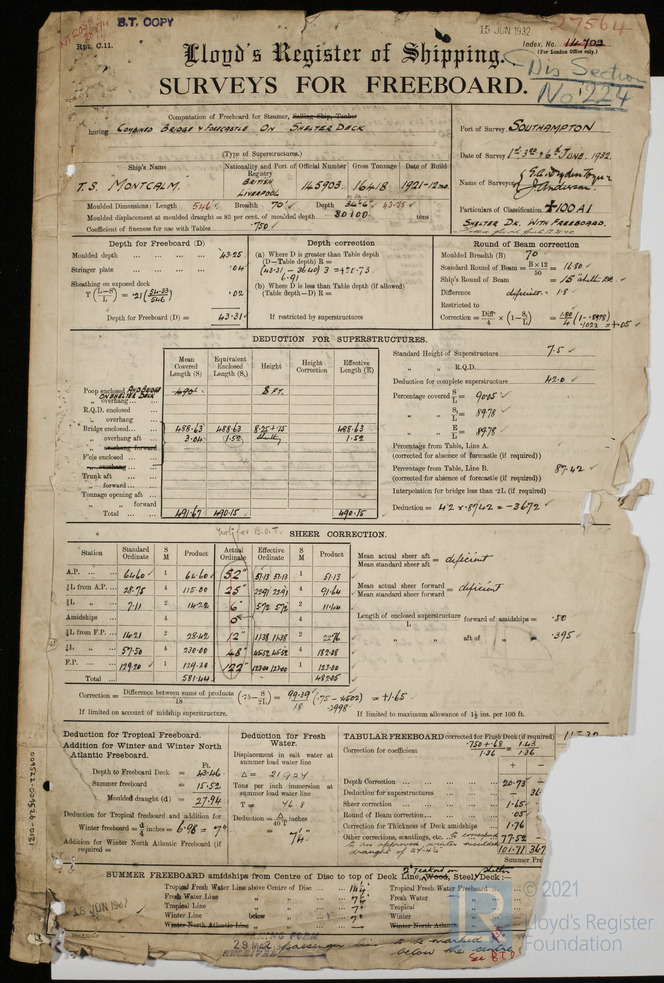 B.T. COPY
15 JUN 1932
27564
Rpt. C.11.
Index. No. 14702
(For London Office only.)
Lloyd's Register of Shipping.
SURVEYS FOR FREEBOARD.
Dis Section
No 224
Computation of Freeboard for Steamer, Sailing Ship, Tanker
having COMBINED BRIDGE & FORECASTLE ON SHELTER DECK
(Type of Superstructures.)
Port of Survey SOUTHAMPTON
Date of Survey 1st 3rd & 6th JUNE. 1932.
Name of Surveyor
J. Anderson
Particulars of Classification +100 A1
SHELTER DK. WITH FREEBOARD.
Ship's Name
Nationality and Port of Registry
Official Number
Gross Tonnage
Date of Build
T.S. MONTCALM.
BRITISH
LIVERPOOL
145903
16418
1921-12 mo.
Moulded Dimensions: Length 546 Breadth 70 Depth 34'-6" 43.25
Moulded displacement at moulded draught = 85 per cent. of moulded depth 30100 tons
Coefficient of fineness for use with Tables .750
Depth for Freeboard (D)
Moulded depth 43.25
Stringer plate .04
Sheathing on exposed deck
T (L-S / L) = .02
Depth for Freeboard (D) = 43.31
Depth correction
(a) Where D is greater than Table depth
(D—Table depth) R =
(43.31 - 36.40) 3 = +20.73
6.91
(b) Where D is less than Table depth (if allowed)
(Table depth—D) R =
If restricted by superstructures
Round of Beam correction
Moulded Breadth (B) 70
Standard Round of Beam = B×12/50 = 16.80
Ship's Round of Beam = 15"
Difference deficient = 1.8
Restricted to
Correction = Diff/4 × (1 - S₁/L) = 1.80/4 (1 - .8978) = +.05
.1022
DEDUCTION FOR SUPERSTRUCTURES.
Mean Covered Length (S)
Equivalent Enclosed Length (S₁)
Height
Height Correction
Effective Length (E)
Poop enclosed AND BRIDGE ON SHELTER DECK 490 8 FT.
" overhang
R.Q.D. enclosed
" overhang
Bridge enclosed 488.63 488.63 8.25 + .75 488.63
" overhang aft 3.04 1.52 1.52
" overhang forward
F'cle enclosed
" overhang
Trunk aft
" forward
Tonnage opening aft
" " forward
Total 491.67 490.15 490.15
Standard Height of Superstructure 7.5
" " R.Q.D.
Deduction for complete superstructure 42.0
Percentage covered S/L = 90.05
" " S₁/L = 89.78
" " E/L = 89.78
Percentage from Table, Line A.
(corrected for absence of forecastle (if required))
Percentage from Table, Line B. 87.42
(corrected for absence of forecastle (if required))
Interpolation for bridge less than ·2L (if required)
Deduction = 42 × .8742 = -36.72
not for B.O.T.
SHEER CORRECTION.
Station
Standard Ordinate
S M
Product
Actual Ordinate
Effective Ordinate
S M
Product
A.P. 64.60 1 64.60 52" 51.13 51.13 1 51.13
⅙L from A.P. 28.75 4 115.00 25" 22.91 22.91 4 91.64
⅓L " 7.11 2 14.22 6" 5.72 5.72 2 11.44
Amidships 4 0" 4
⅓L from F.P. 14.21 2 28.42 12" 11.38 11.38 2 22.76
⅙L " 57.50 4 230.00 48" 45.52 45.52 4 182.08
F.P. 129.20 1 129.20 122" 123.00 123.00 1 123.00
Total 581.44 482.05
Mean actual sheer aft / Mean standard sheer aft = deficient
Mean actual sheer forward / Mean standard sheer forward = deficient
Length of enclosed superstructure / L forward of amidships = .50
" " aft of " = .395
Correction = Difference between sums of products / 18 (·75 - S/2L) = 99.39/18 (.75 - .4502) = +1.65
.2998
If limited on account of midship superstructure.
If limited to maximum allowance of 1½ ins. per 100 ft.
Deduction for Tropical Freeboard.
Addition for Winter and Winter North Atlantic Freeboard.
Ft.
Depth to Freeboard Deck = 43.46
Summer freeboard = 15.52
Moulded draught (d) = 27.94
Deduction for Tropical freeboard and addition for
Winter freeboard = d/4 inches = 6.98 = 7"
Addition for Winter North Atlantic Freeboard (if required =
Deduction for Fresh Water.
Displacement in salt water at summer load water line
Δ = 21924
Tons per inch immersion at summer load water line
T = 76.8
Deduction = Δ/40T inches
= 7¼"
TABULAR FREEBOARD corrected for Flush Deck (if required)
Correction for coefficient .750 + .68 / 1.36 = 1.43 / 1.36
+ -
Depth Correction 20.73
Deduction for superstructures 36
Sheer correction 1.65
Round of Beam correction .05
Correction for Thickness of Deck amidships 1.76
Other corrections, scantlings, etc. to correspond 77.52
to an approved winter moulded
draught of
101.71 36.7
Summer Fre
SUMMER FREEBOARD amidships from Centre of Disc to top of Deck Line, Wood, Steel, Deck
Tropical Fresh Water Line above Centre of Disc 14¼
Fresh Water Line " " 7¼
Tropical Line " " 7"
Winter Line below " " 7"
Winter North Atlantic Line " "
Tropical Fresh Water Freeboard
Fresh Water "
Tropical "
Winter "
Winter North Atlantic "
18 JUN 1932
RECEIVED
passenger line to be marked
below the centre
See B.T.O
© 2021
Lloyd's Register
Foundation